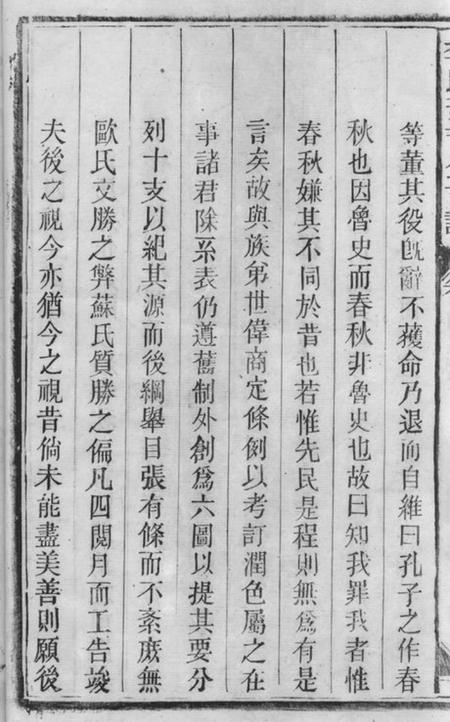 等董其役既辭不獲命乃退而自維曰孔子之作春
秋也因魯史而春秋非魯史也故曰知我罪我者惟
春秋嫌其不同於昔也若惟先民是程則無爲有是
言矣故與族弟世偉商定條例以考訂潤色屬之在
事諸君除系表仍遵舊制外創爲六圖以提其要分
列十支以紀其源而後綱舉目張有條而不紊庶無
歐氏文勝之弊蘇氏質勝之偏凡四閱月而工告竣
夫後之視今亦猶今之視昔倘未能盡美善則願後